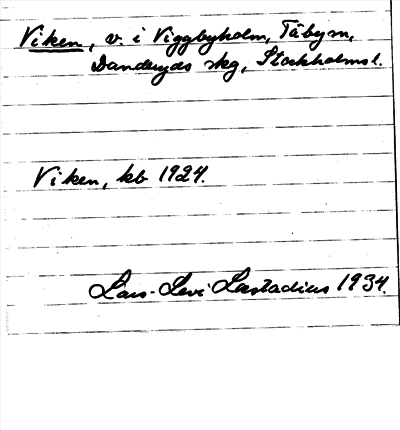 Viken, v. i Viggbyholm, Täby sn,
Danderyds skg, Stockholms l.
Viken, kb 1924.
Lars-Levi Læstadius 1934.